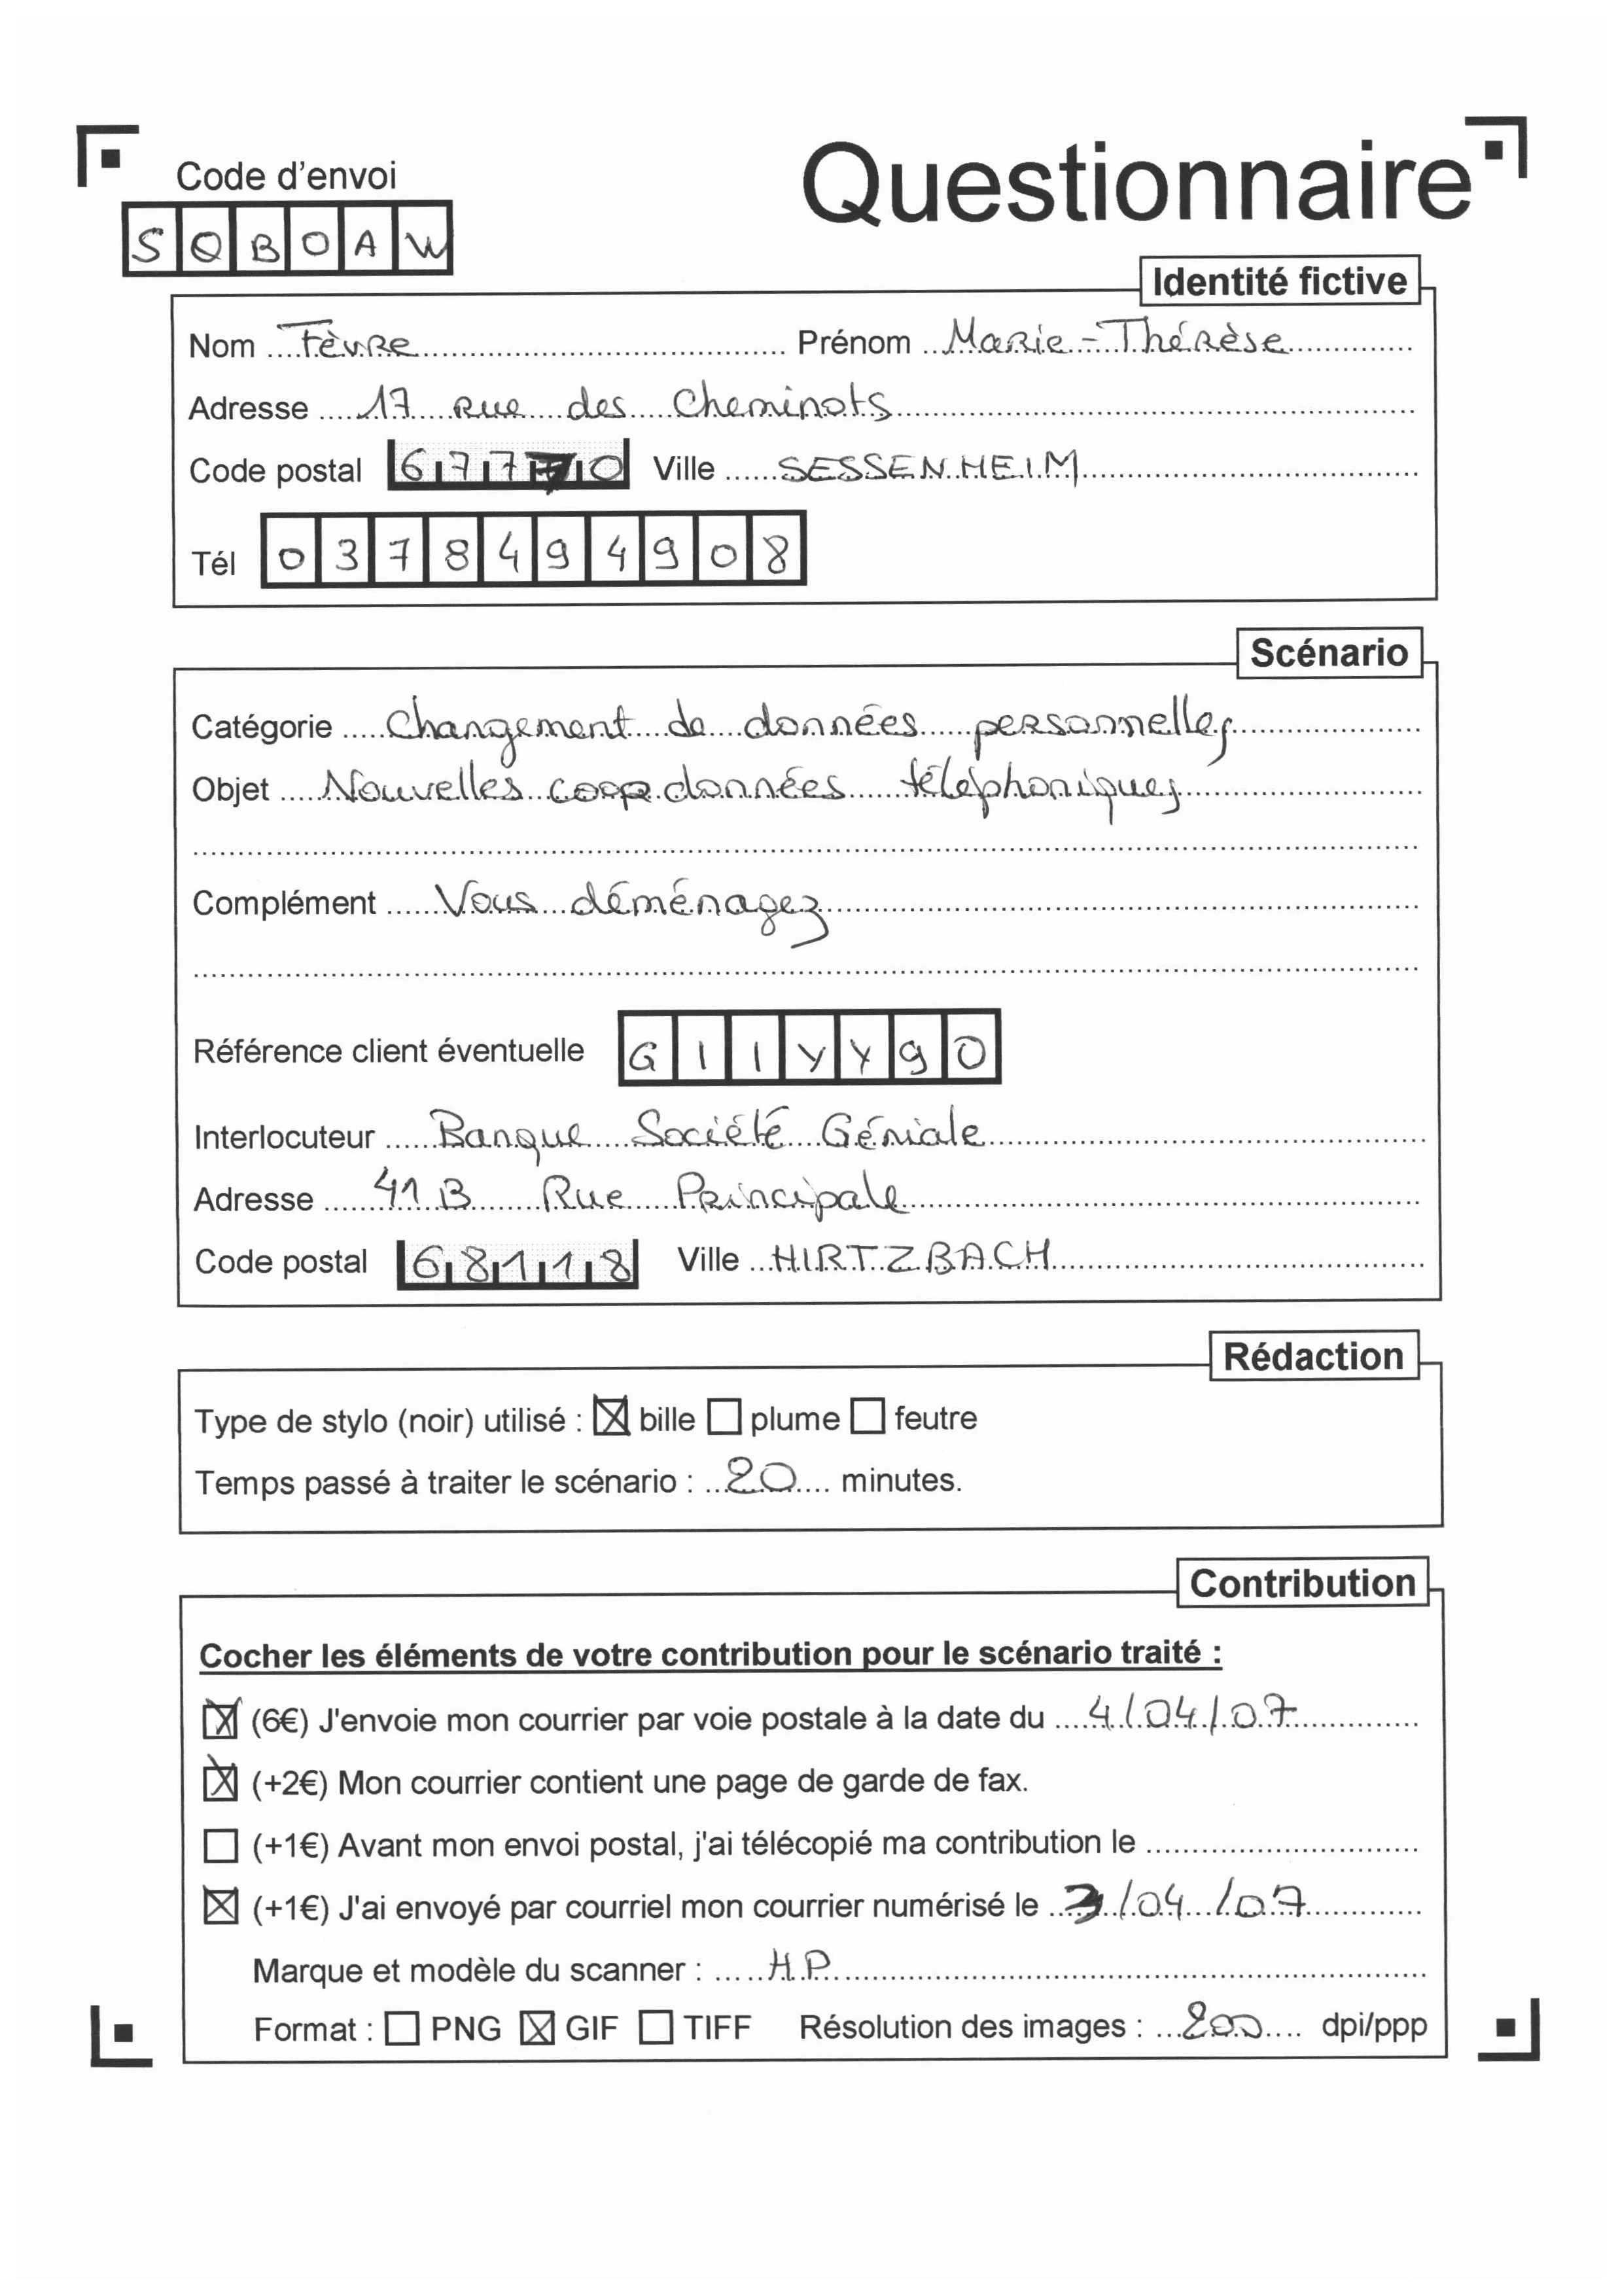 Code d'envoi
Questionnaire
S Q B O A W
Identité fictive
Nom Fèvre Prénom Marie-Thérèse
Adresse 17 rue des Cheminots
Code postal 67770 Ville SESSENHEIM
Tél 0378494908
Scénario
Catégorie Changement de données personnelles
Objet Nouvelles coordonnées téléphoniques
Complément Vous déménagez
Référence client éventuelle G11YY90
Interlocuteur Banque Société Géniale
Adresse 41B Rue Principale
Code postal 68118 Ville HIRTZBACH
Rédaction
Type de stylo (noir) utilisé : ☒ bille ☐ plume ☐ feutre
Temps passé à traiter le scénario : 20 minutes.
Contribution
Cocher les éléments de votre contribution pour le scénario traité :
☒ (6€) J'envoie mon courrier par voie postale à la date du 4/04/07
☒ (+2€) Mon courrier contient une page de garde de fax.
☐ (+1€) Avant mon envoi postal, j'ai télécopié ma contribution le
☒ (+1€) J'ai envoyé par courriel mon courrier numérisé le 3/04/07
Marque et modèle du scanner : HP
Format : ☐ PNG ☒ GIF ☐ TIFF Résolution des images : 200 dpi/ppp